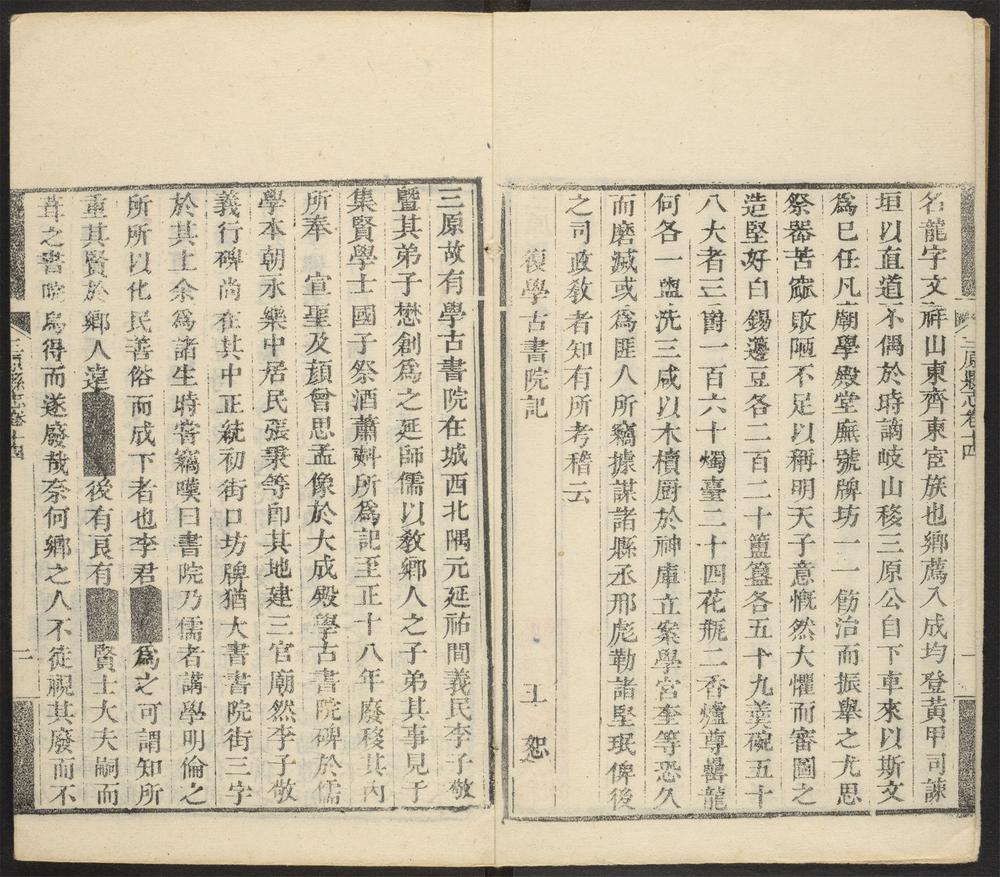 名龍字文祥山東齊東宦族也鄉薦入成均登黃甲司諫
垣以直道不偶於時謫岐山移三原公自下車來以斯文
為己任凡廟學殿堂廡號牌坊一一飭治而振舉之尤思
祭器苦窳敗陋不足以稱明天子意慨然大懼而審圖之
造堅好白錫籩豆各二百二十簠簋各五十九羹碗五十
八大者三爵一百六十燭臺二十四花瓶二香爐尊罍龍
何各一盥洗三咸以木櫝厨於神庫立案學宮奎等恐久
而磨滅或為匪人所竊據謀諸縣丞邢彪勒諸堅珉俾後
之司政教者知有所考稽云
復學古書院記 王 恕
三原故有學古書院在城西北隅元延祐間義民李子敬
暨其弟子懋創為之延師儒以教鄉人之子弟其事見于
集賢學士國子祭酒蕭㪺所為記至正十八年廢移其內
所奉 宣聖及顏曾思孟像於大成殿學古書院碑於儒
學本朝永樂中居民張秉等即其地建三官廟然李子敬
義行碑尚在其中正統初街口坊牌猶大書書院街三字
於其上余為諸生時嘗竊嘆曰書院乃儒者講學明倫之
所所以化民善俗而成下者也李君 為之可謂知所
重其賢於鄉人遠 後有良有 賢士大夫嗣而
葺之書院烏得而遂廢哉奈何鄉之人不徒視其廢而不
三原縣志卷十四 一
三原縣志卷十四 二